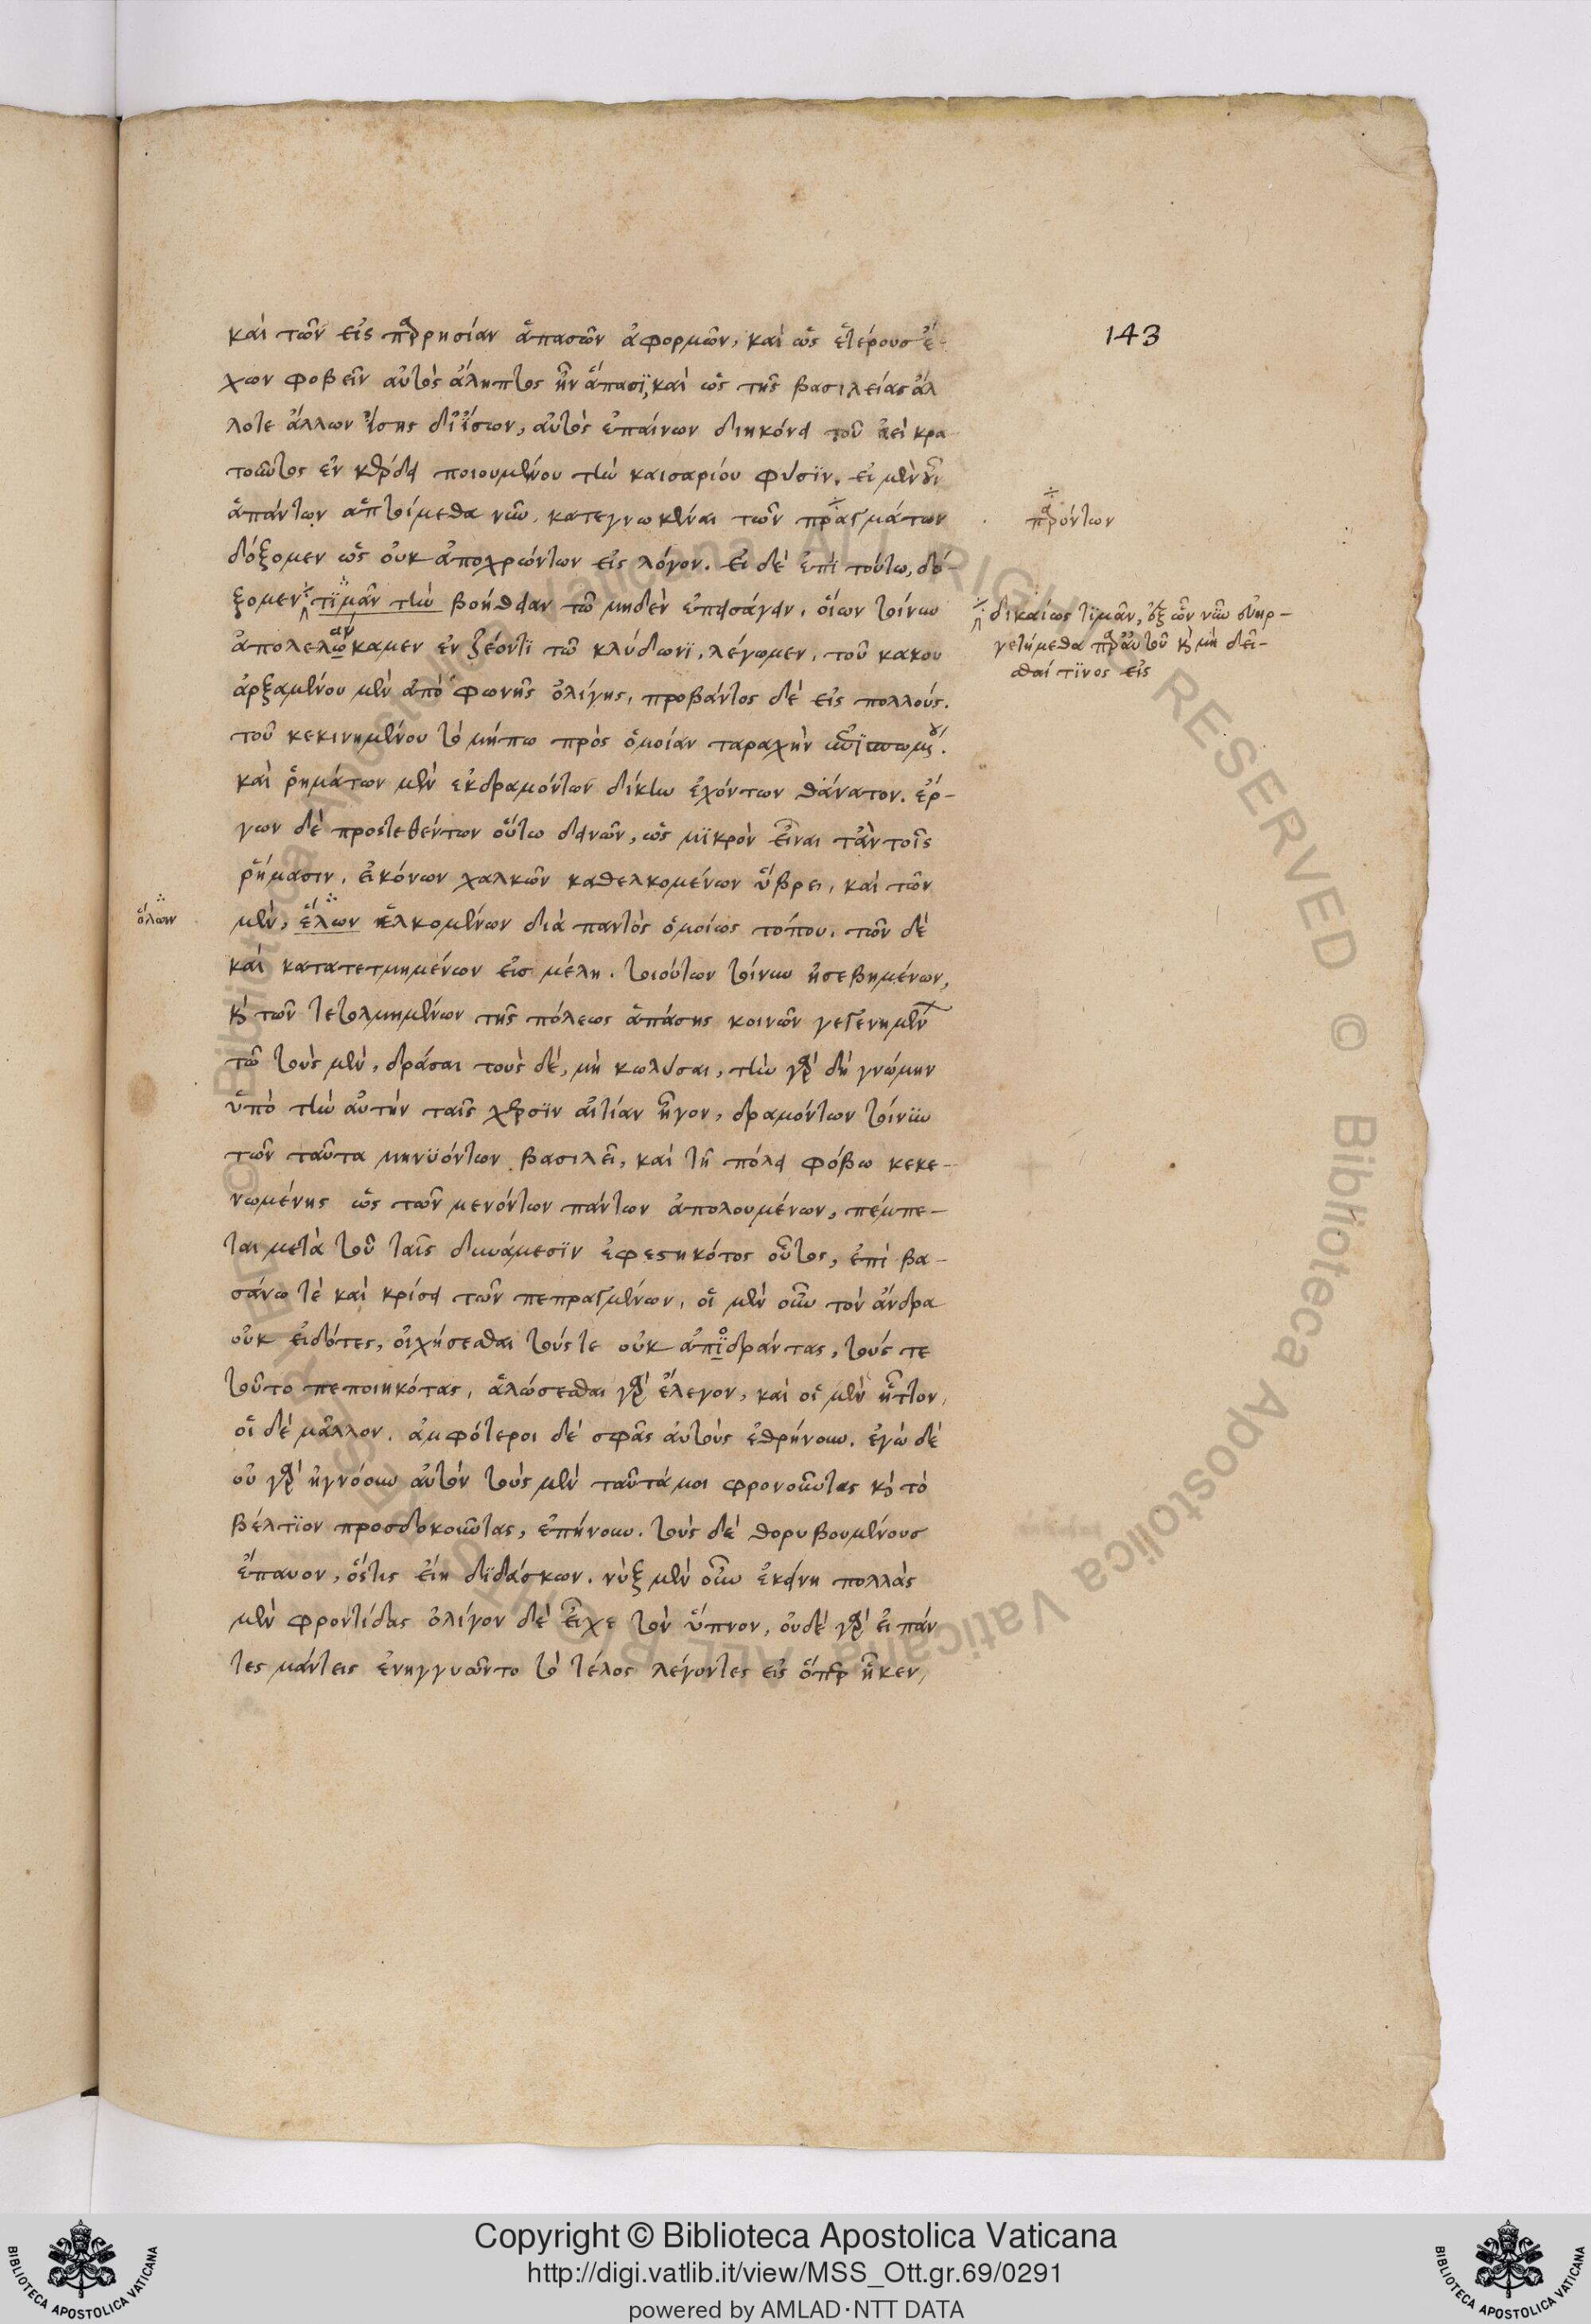 143
καὶ τῶν εἰς παρρησίαν ἁπασῶν ἀφορμῶν, καὶ ὡς ἑτέρουσ ἔ-
χων φοβεῖν αὐτὸς ἄληπτος ἦν ἅπασϊ, καὶ ὡς τῆς βασιλείας ἄλ
λοτε ἄλλων ἴσης δι ἴσων, αὐτὸς ἐπαίνων διηκόνει τοῦ ἀεὶ κρα
τοῦντος ἐν κέρδει ποιουμένου τὴν καισαρίου φύσϊν. εἰ μὲν οὖν
ἁπάντων ἁπτοίμεθα νῦν, κατεγνωκέναι τῶν πραγμάτων
δόξομεν ὡς οὐκ ἀποχρώντων εἰς λόγον. εἰ δὲ ἐπὶ τούτω, δό-
ξομεν τϊμᾶν τὴν βοήθειαν τῶ μηδὲν ἐπεισάγειν. οἵων τοίνυν
ἀπολελαύκαμεν ἐν ζέοντϊ τῶ κλύδωνϊ, λέγωμεν. τοῦ κακου
ἀρξαμένου μὲν ἀπὸ φωνῆς ὀλίγης, προβάντος δὲ εἰς πολλούς.
τοῦ κεκινημένου τὸ μήπω πρὸς ὁμοίαν ταραχὴν
καὶ ῥημάτων μὲν ἐκδραμόντων δίκην ἐχόντων θάνατον. ἔρ-
γων δὲ προστεθέντων οὕτω δεινῶν, ὡς μϊκρὸν εἶναι τἀν τοῖς
ῥήμασιν. εἰκόνων χαλκῶν καθελκομένων ὕβρει, καὶ τῶν
μὲν, ἕλων ἑλκομένων διὰ παντὸς ὁμοίως τόπου. τῶν δὲ
καὶ κατατετμημένων εἰσ μέλη. τοιούτων τοίνυν ἠσεβημένων,
κὶ τῶν τετολμημένων τῆς πόλεως ἁπάσης κοινῶν γεγενημένων
τῶ τοὺς μὲν, δράσαι τοὺς δὲ, μὴ κωλύσαι, τὴν γὰρ δὴ γνώμην
ὑπὸ τὴν αὐτὴν ταῖς χερσϊν αἰτίαν ἦγον, δραμόντων τοίνϋν
τῶν ταῦτα μηνϋόντων βασιλεῖ, καὶ τῆ πόλει φόβω κεκε-
νωμένης ὡς τῶν μενόντων πάντων ἀπολουμένων, πέμπε-
ται μετὰ τοῦ ταῖς δυνάμεσϊν ἐφεστηκότος οὗτος, ἐπὶ βα-
σάνω τὲ καὶ κρίσει τῶν πεπραγμένων. οἱ μὲν οὖν τὸν ἄνδρα
οὐκ εἰδότες, οἰχήσεσθαι τούς τε οὐκ ἀπϊδράντας, τούς τε
τοῦτο πεποιηκότας, ἁλώσεσθαι γὰρ ἔλεγον, καὶ οἱ μὲν ἧττον,
οἱ δὲ μᾶλλον. ἀμφότεροι δὲ σφᾶς αὐτοὺς ἐθρήνουν. ἐγὼ δὲ
οὐ γὰρ ἠγνόουν αὐτὸν τοὺς μὲν ταῦτά μοι φρονοῦντας κὶ τὸ
βέλτϊον προσδοκοῦντας, ἐπήνουν. τοὺς δὲ θορυβουμένουσ
ἔπαυον, ὅστις εἴη δϊδάσκων. νὺξ μὲν οὖν ἐκείνη πολλὰς
μὲν φροντίδας ὀλίγον δὲ εἶχε τὸν ὕπνον, οὐδὲ γὰρ εἰ πάν
τες μάντεις ἐνηγγυῶντο τὸ τέλος λέγοντες εἰς ὅπερ ἧκεν,
παρόντων
δικαίως τϊμᾶν, ἐξ ὧν νῦν εὐηρ-
γετήμεθα παρ αὐτοῦ κὶ μὴ δεῖ-
σθαί τϊνος εἰς
ὅλων
Copyright © Biblioteca Apostolica Vaticana
http://digi.vatlib.it/view/MSS_Ott.gr.69/0291
powered by AMLAD·NTT DATA
BIBLIOTECA APOSTOLICA VATICANA
BIBLIOTECA APOSTOLICA VATICANA